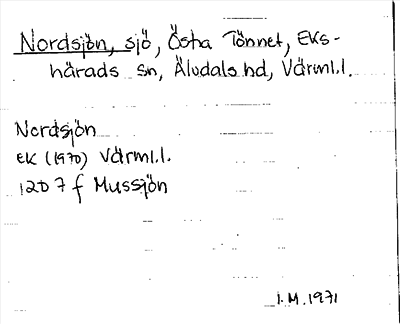 Nordsjön, sjö, Östra Tönnet, Eks-
härads sn, Älvdals hd, Värml.l.
Nordsjön
EK (1970) Värml.l.
12D 7 f Mussjön
I.M. 1971